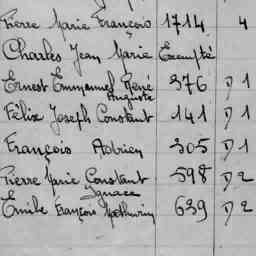 Pierre Marie François 1714 4
Charles Jean Marie Exempté
Ernest Emmanuel René 376 D 1
Auguste
Félix Joseph Constant 141 D 1
François Adrien 305 D 1
Pierre Marie Constant 598 D 2
Ignace
Emile François Mathurin 639 D 2